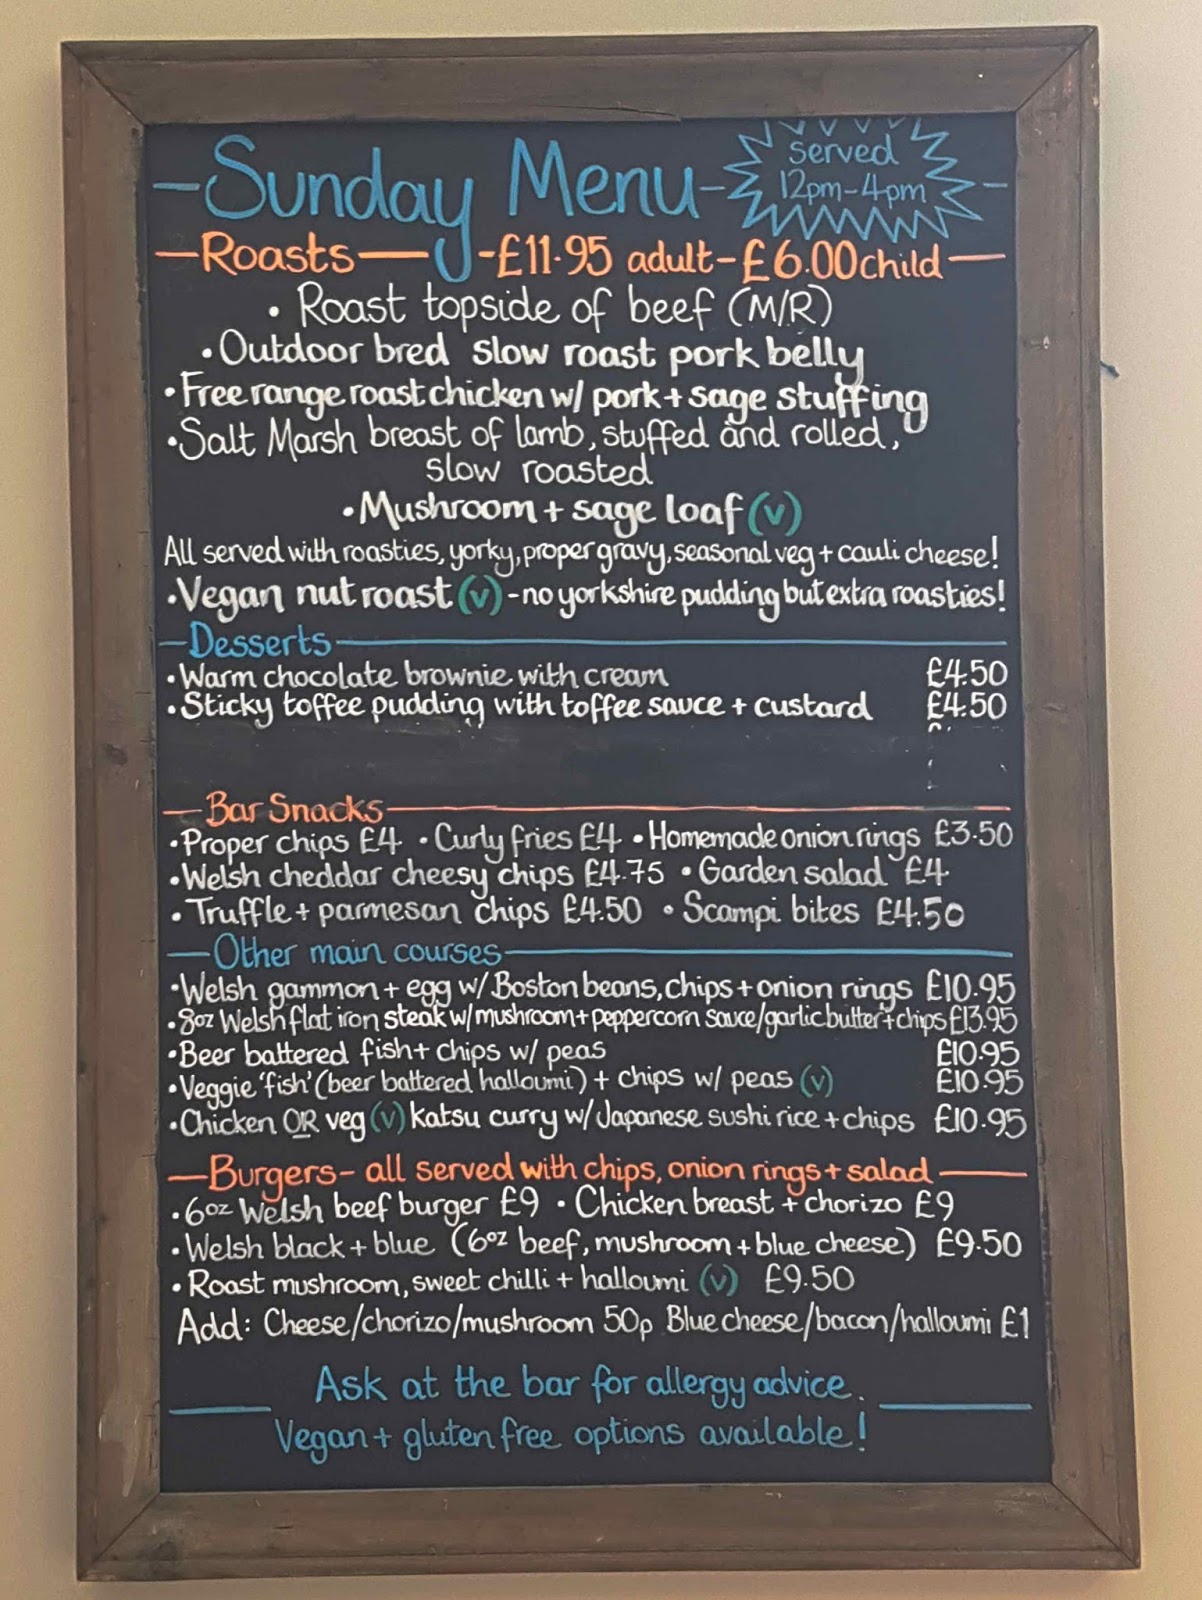 Sunday Menu
Served
12pm-4pm
Roasts - £11.95 adult - £6.00 child
• Roast topside of beef (M/R)
• Outdoor bred slow roast pork belly
• Free range roast chicken w/ pork + sage stuffing
• Salt Marsh breast of lamb, stuffed and rolled,
slow roasted
• Mushroom + sage loaf (v)
All served with roasties, yorky, proper gravy, seasonal veg + cauli cheese!
• Vegan nut roast (v) - no yorkshire pudding but extra roasties!
Desserts
• Warm chocolate brownie with cream £4.50
• Sticky toffee pudding with toffee sauce + custard £4.50
Bar Snacks
• Proper chips £4 • Curly fries £4 • Homemade onion rings £3.50
• Welsh cheddar cheesy chips £4.75 • Garden salad £4
• Truffle + parmesan chips £4.50 • Scampi bites £4.50
Other main courses
• Welsh gammon + egg w/ Boston beans, chips + onion rings £10.95
• 8oz Welsh flat iron steak w/ mushroom + peppercorn sauce/garlic butter + chips £13.95
• Beer battered fish + chips w/ peas £10.95
• Veggie 'fish' (beer battered halloumi) + chips w/ peas (v) £10.95
• Chicken OR veg (v) katsu curry w/ Japanese sushi rice + chips £10.95
Burgers - all served with chips, onion rings + salad
• 6oz Welsh beef burger £9 • Chicken breast + chorizo £9
• Welsh black + blue (6oz beef, mushroom + blue cheese) £9.50
• Roast mushroom, sweet chilli + halloumi (v) £9.50
Add: Cheese/chorizo/mushroom 50p Blue cheese/bacon/halloumi £1
Ask at the bar for allergy advice.
Vegan + gluten free options available!